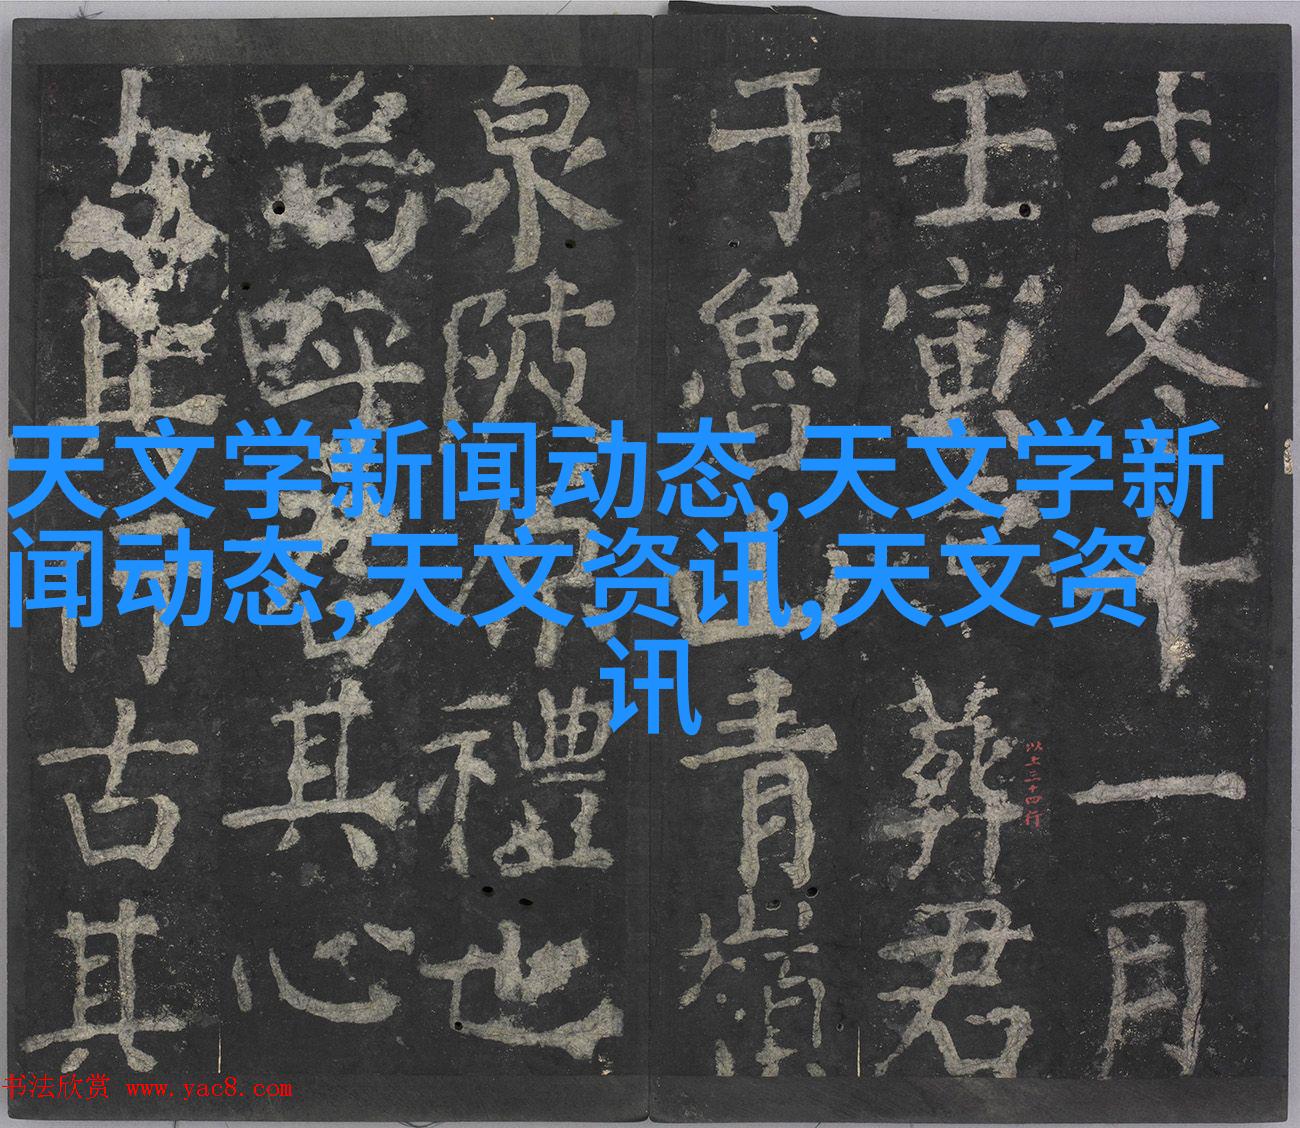 年冬十一月
壬寅
葬君
以上三十四行
于魯山青嶺
泉陂原禮也
嗚呼
其心
其行古其
天文学新闻动态,天文学新
闻动态,天文资讯,天文资
讯
书法欣赏 www.yac8.com